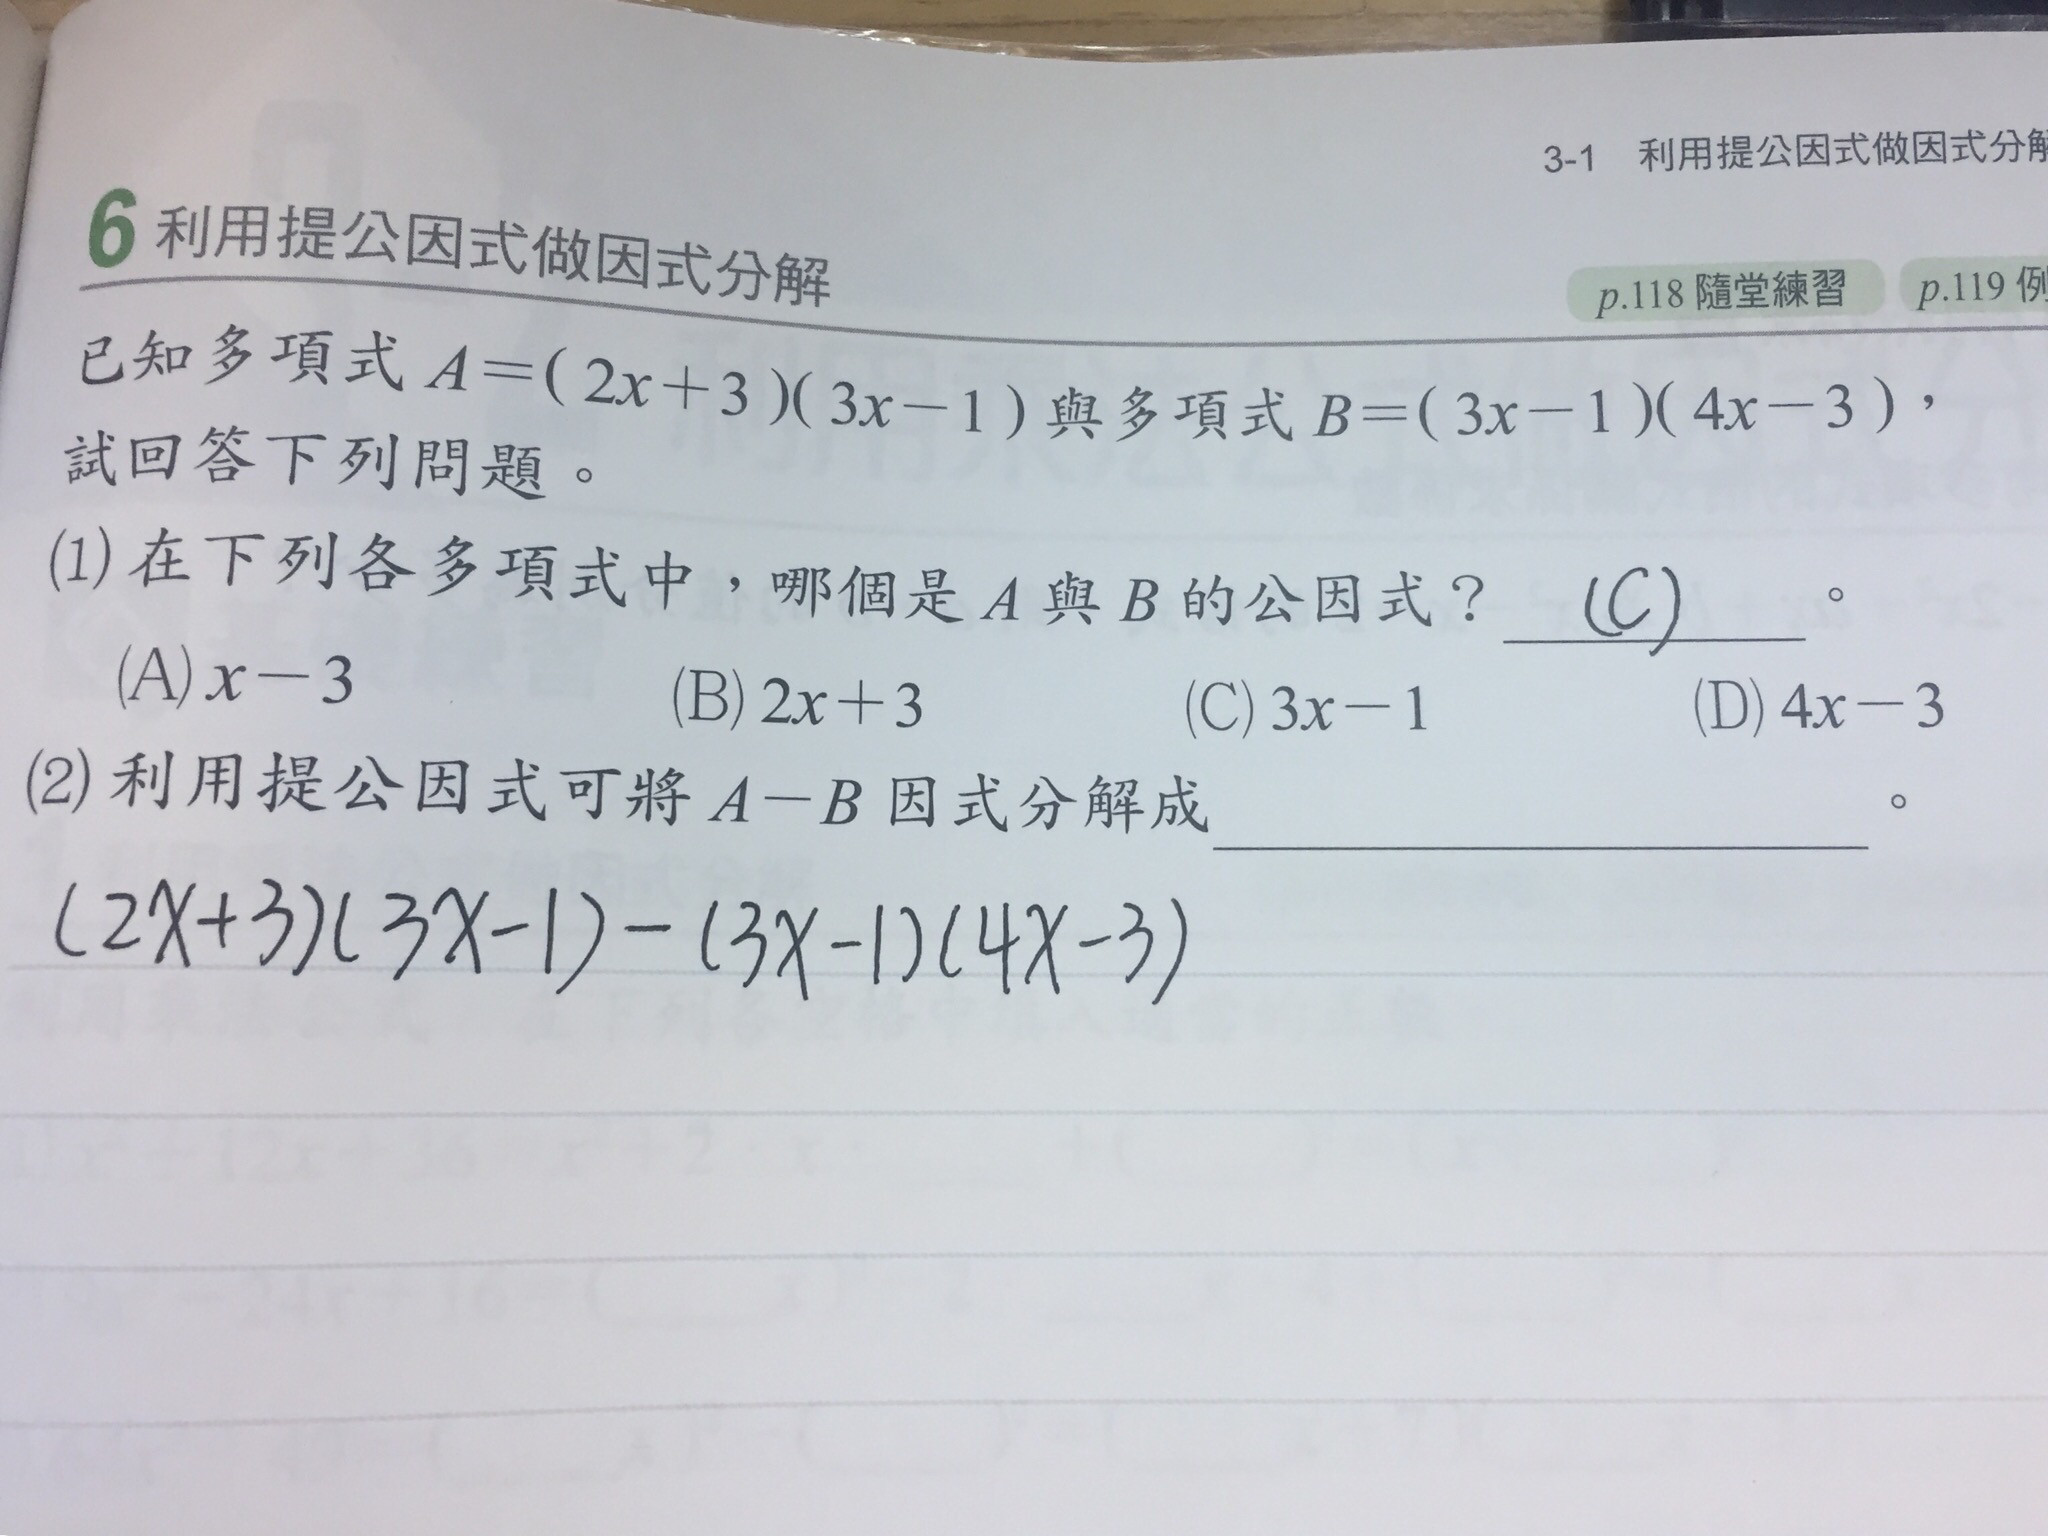 3-1 利用提公因式做因式分解
6 利用提公因式做因式分解
p.118 隨堂練習 p.119 例
已知多項式 A=(2x+3)(3x-1)與多項式 B=(3x-1)(4x-3),
試回答下列問題。
(1) 在下列各多項式中,哪個是 A 與 B 的公因式? (C) 。
(A) x-3 (B) 2x+3 (C) 3x-1 (D) 4x-3
(2) 利用提公因式可將 A-B 因式分解成 。
(2x+3)(3x-1)-(3x-1)(4x-3)